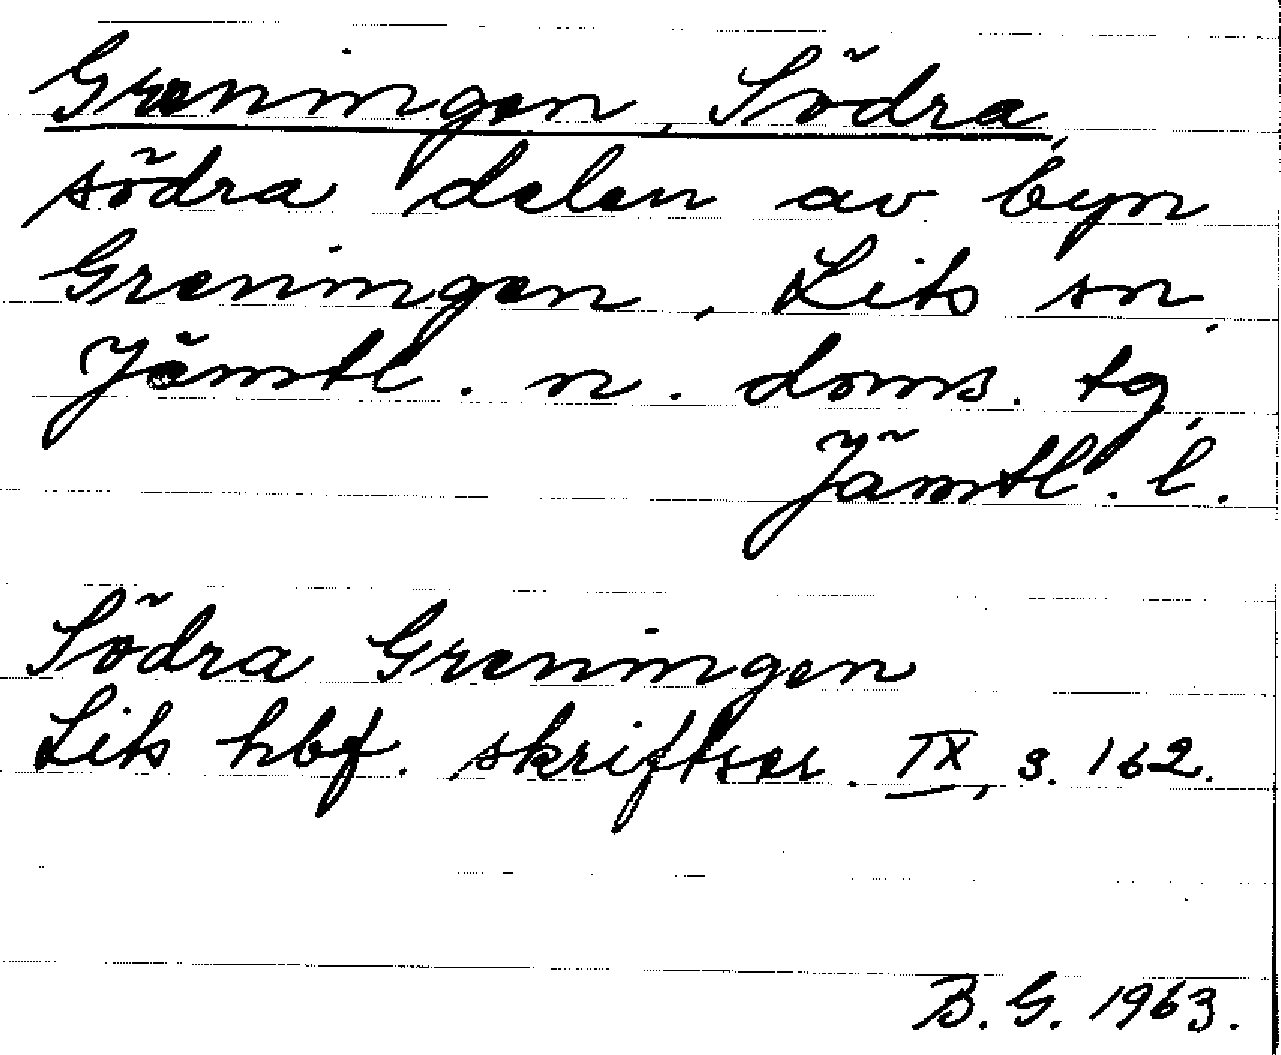 Greningen, Södra,
södra delen av byn
Greningen, Lits sn,
Jämtl. n. doms. tg,
Jämtl. l.
Södra Greningen
Lits hbf. skriftser. IX, s. 162.
B. G. 1963.